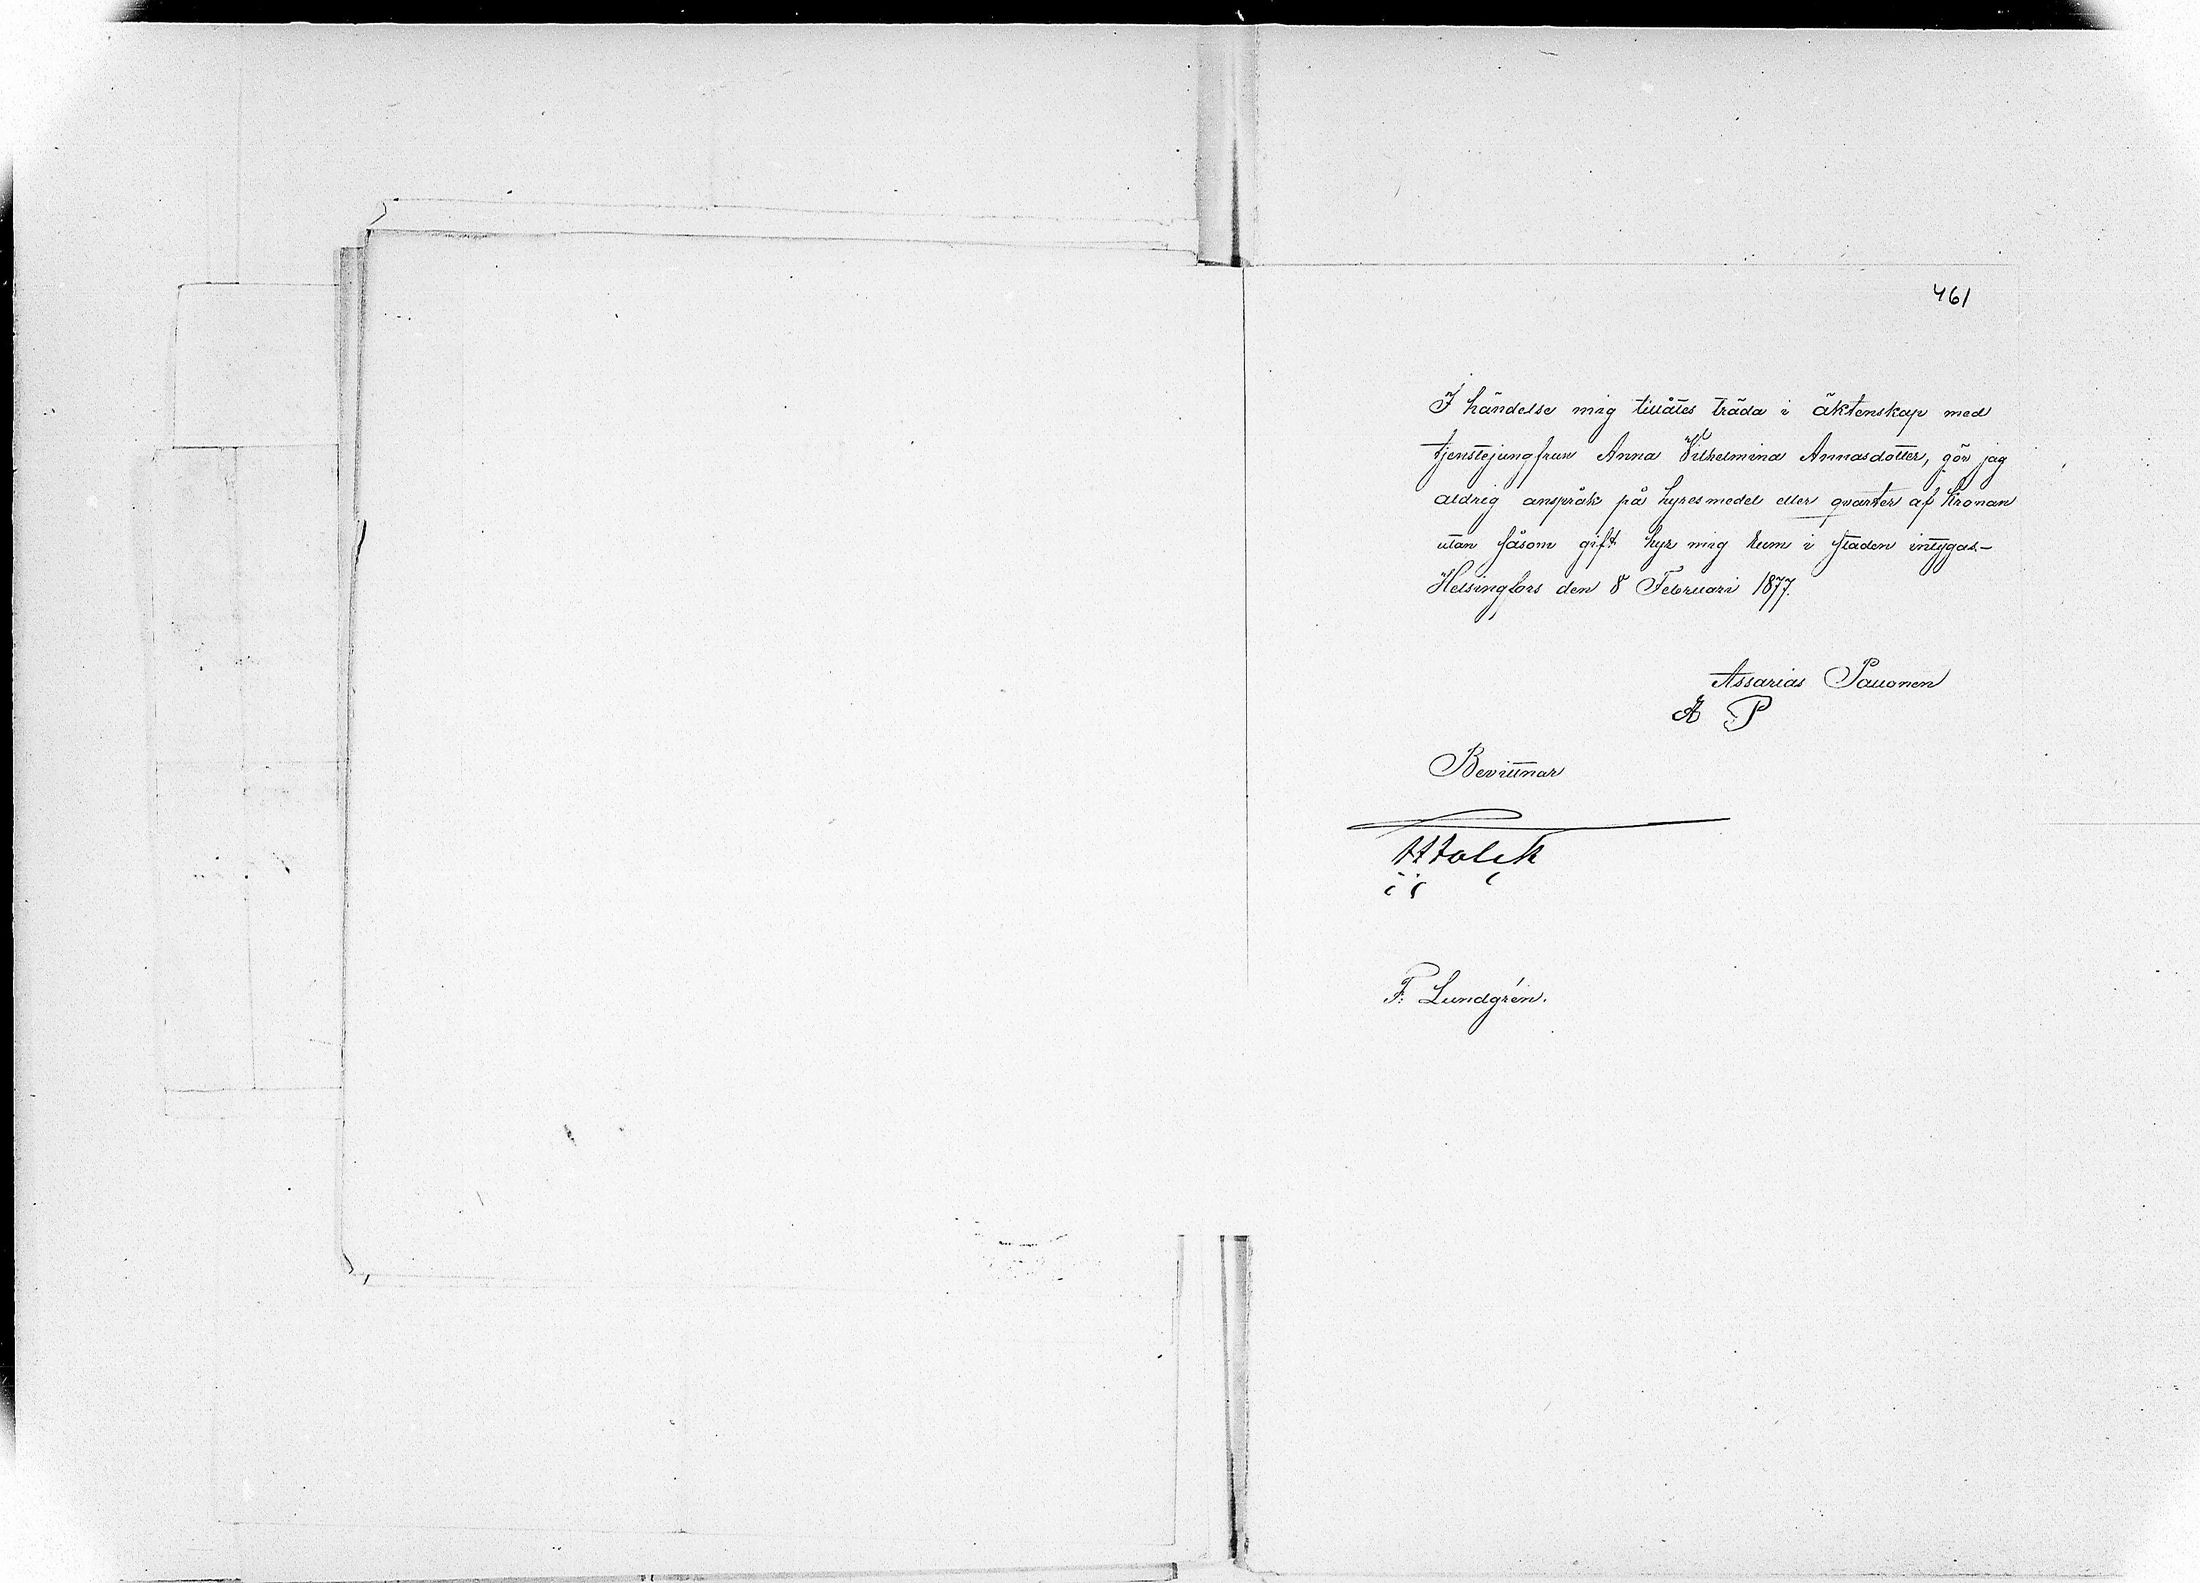 461
I händelse mig tillåtes träda i äktenskap med
tjenstejungfrun Anna Vilhelmina Annasdotter, gör jag
aldrig anspråk på hyresmedel eller qvarter af Kronan
utan såsom gift hyr mig rum i staden intygas-
Helsingfors den 8 Februari 1877.
Assarias Pauonen
A P
Bevittnar
F. Lundgrén.